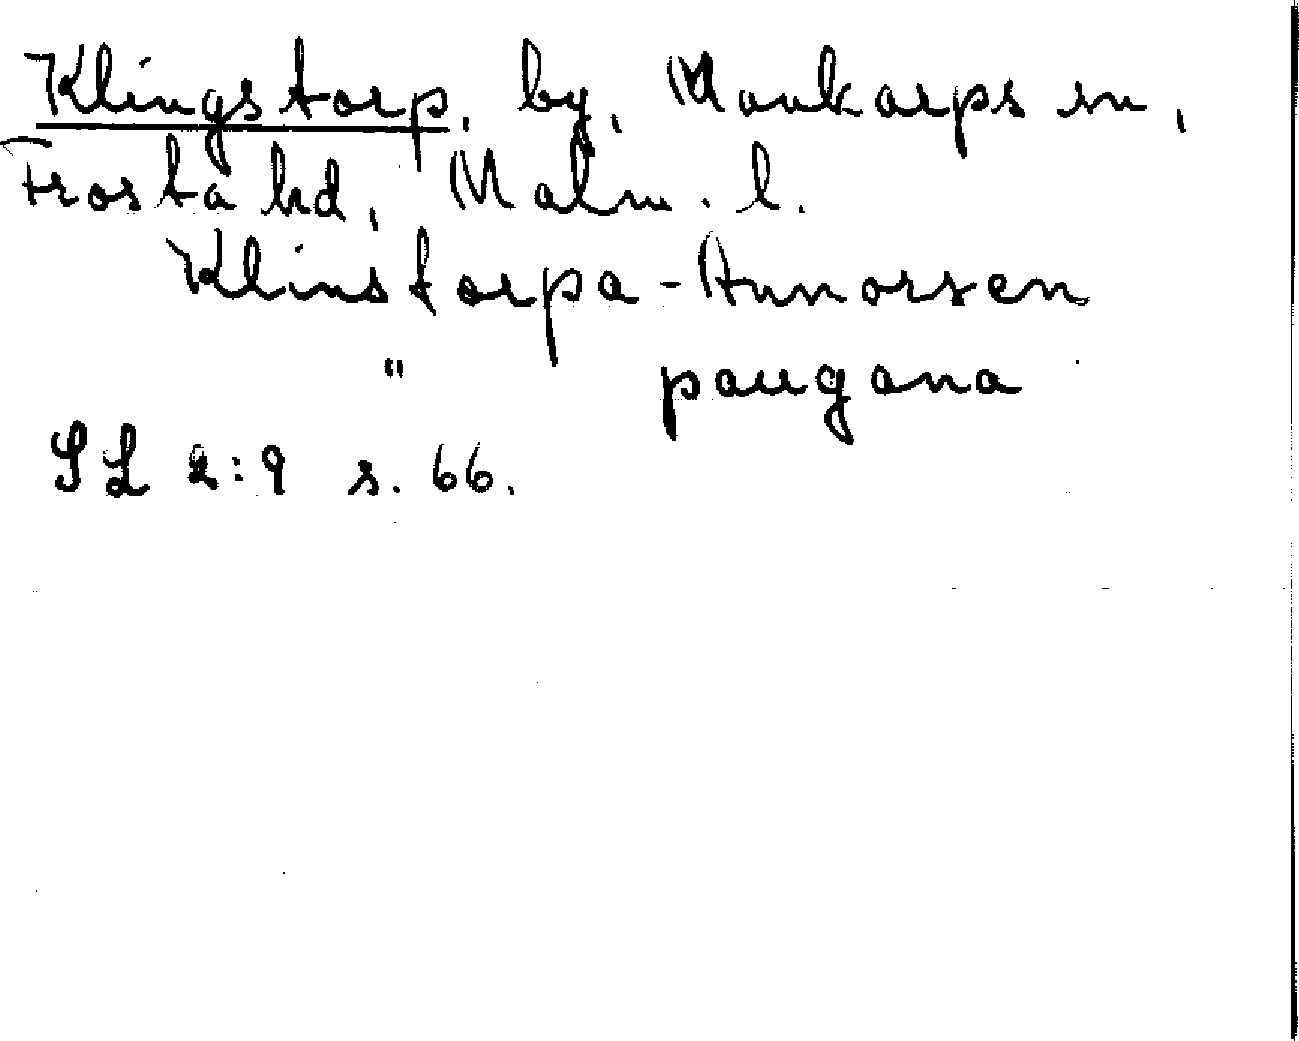 Klingstorp, by, Munkarps sn,
Frosta hd, Malm. l.
Klinstorpa-Annorsen
" paugana
SL 2:9 s. 66.